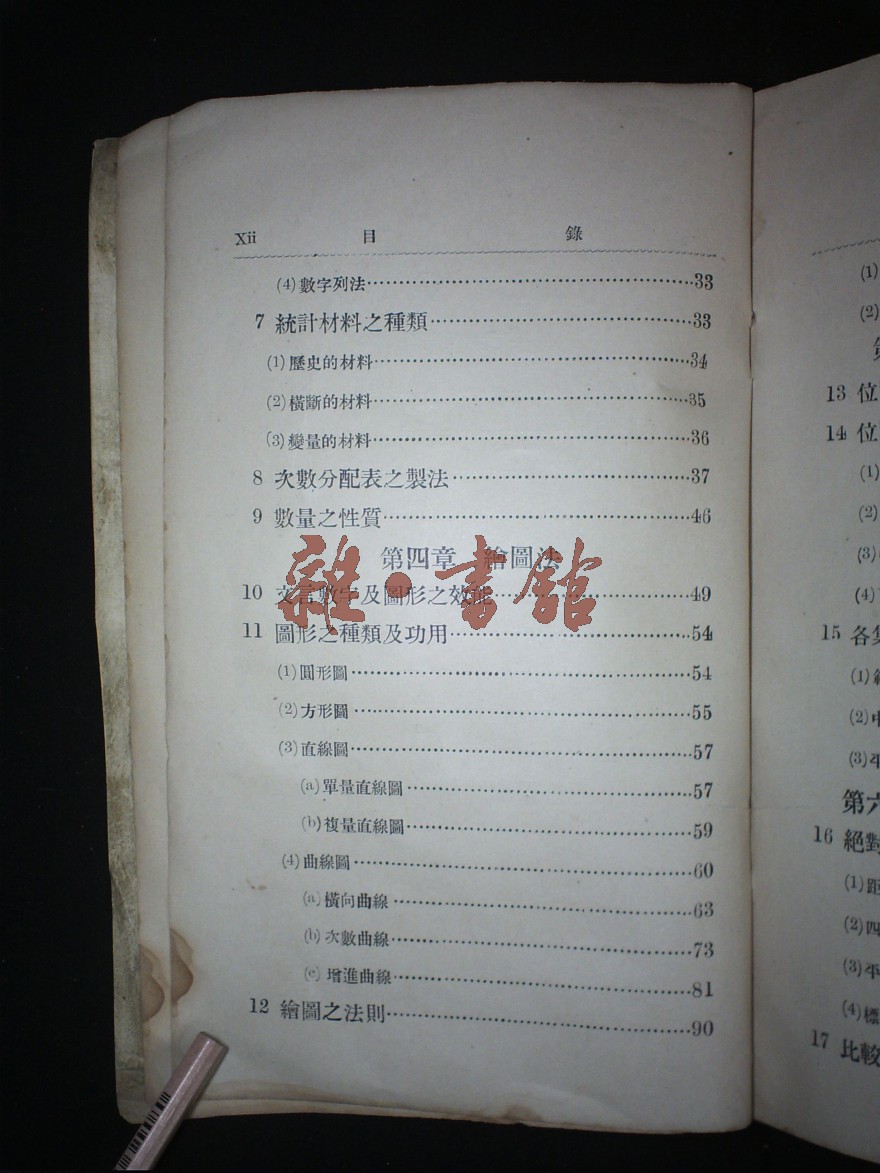 Xii 目 錄
(4) 數字列法 33
7 統計材料之種類 33
(1) 歷史的材料 34
(2) 橫斷的材料 35
(3) 變量的材料 36
8 次數分配表之製法 37
9 數量之性質 46
第四章 繪圖法
雜·書館
10 文言數字及圖形之效能 49
11 圖形之種類及功用 54
(1) 圓形圖 54
(2) 方形圖 55
(3) 直線圖 57
(a) 單量直線圖 57
(b) 複量直線圖 59
(4) 曲線圖 60
(a) 橫向曲線 63
(b) 次數曲線 73
(c) 增進曲線 81
12 繪圖之法則 90
(1)
(2)
13 位
14 位
(1)
(2)
(3)
(4)
15 各
(1)
(2) 中
(3) 平
第六
16 絕對
(1) 距
(2) 四
(3) 平
(4) 標
17 比較